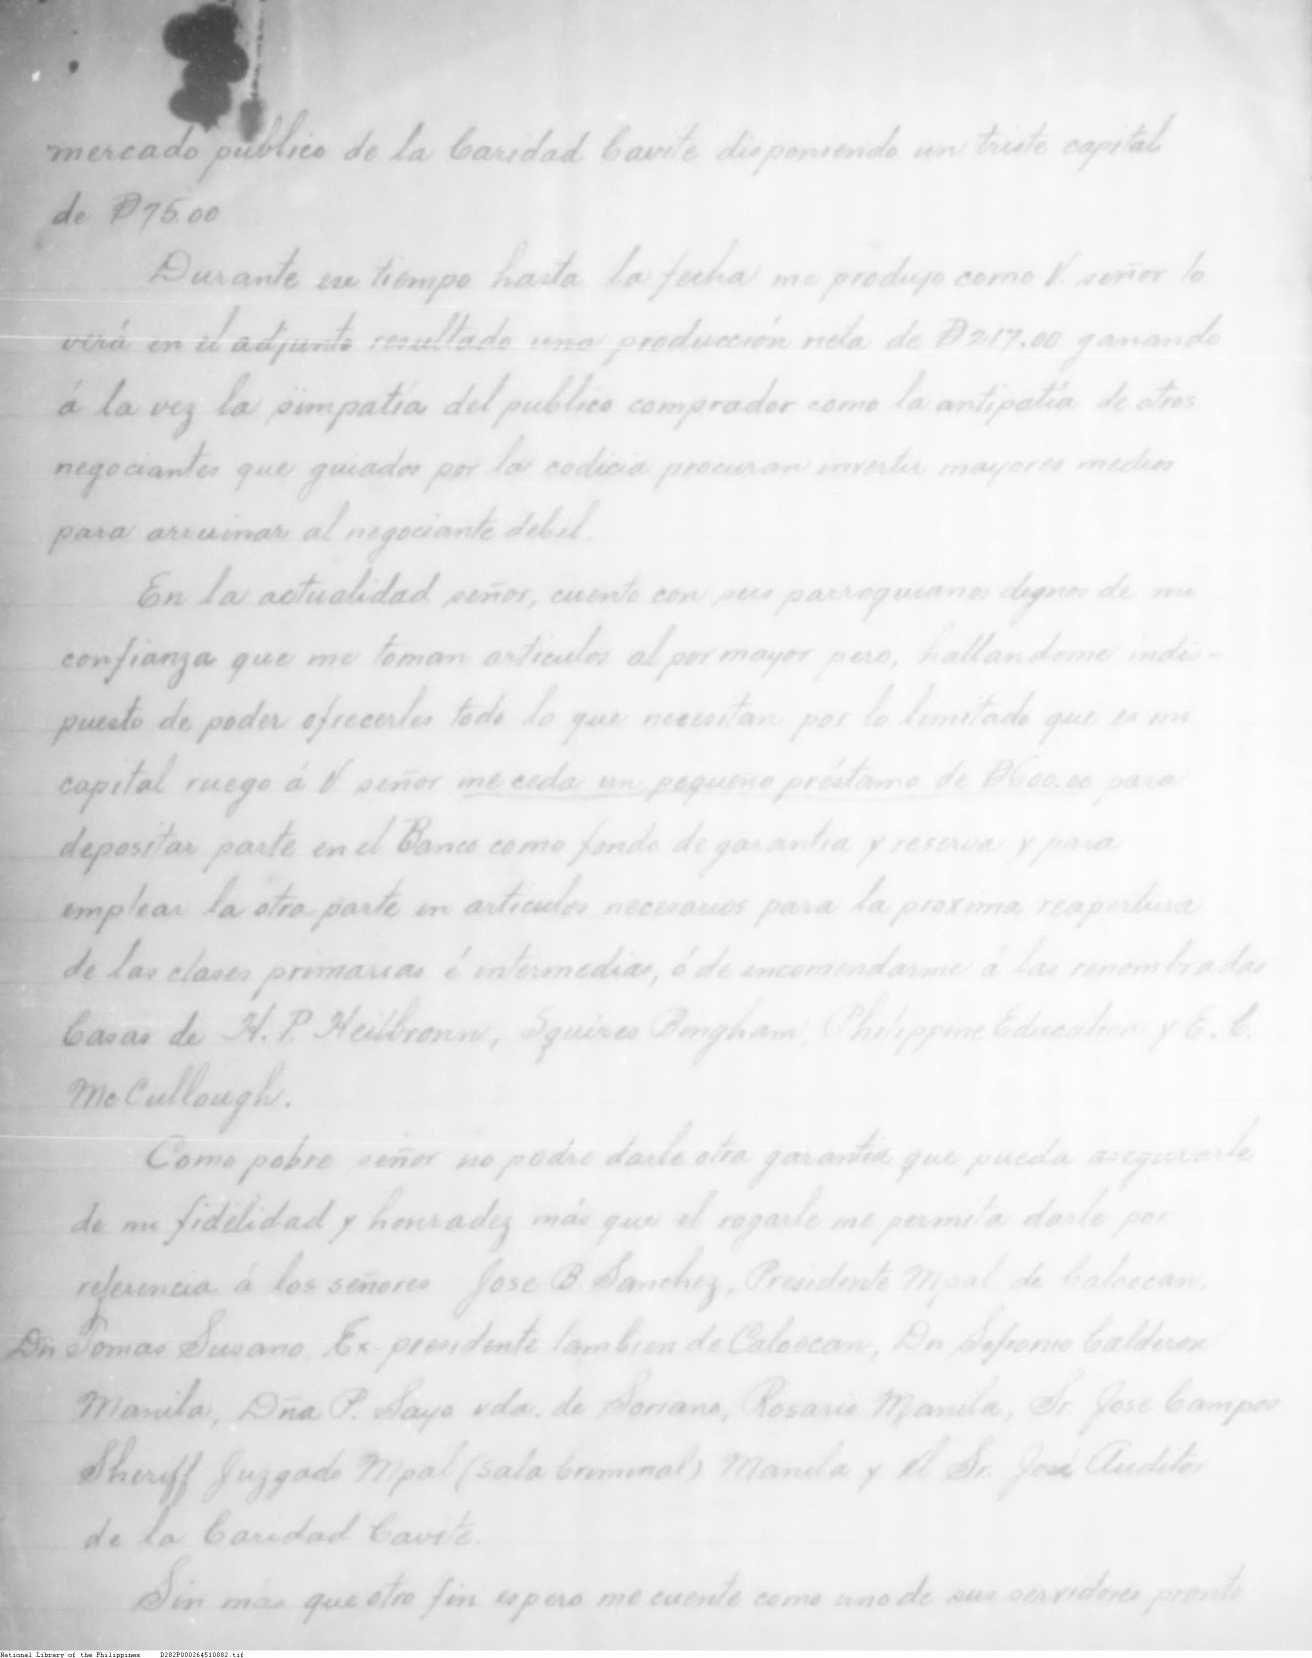 mercado público de la Caridad Cavite disponiendo un triste capital
de ₱75.00
Durante ese tiempo hasta la fecha me produjo como V. señor lo
verá en el adjunto resultado una producción neta de ₱217.00 ganando
á la vez la simpatía del publico comprador como la antipatía de otros
negociantes que guiados por la codicia procuran invertir mayores medios
para arruinar al negociante debil.
En la actualidad señor, cuento con seis parroquianos dignos de mi
confianza que me toman articulos al por mayor pero, hallandome indis-
puesto de poder ofrecerles todo lo que necesitan por lo limitado que es mi
capital ruego á V señor me ceda un pequeño préstamo de ₱600.00 para
depositar parte en el Banco como fondo de garantia y reserva y para
emplear la otra parte en articulos necesarios para la proxima reapertura
de las clases primarias é intermedias, ó de encomendarme á las renombradas
Casas de H. P. Heilbronn, Squires Bingham, Philippine Education y E. C.
McCullough.
Como pobre señor no podre darle otra garantía que pueda asegurarle
de mi fidelidad y honradez más que el rogarle me permita darle por
referencia á los señores Jose B. Sanchez, Presidente Mpal de Caloocan,
Dn Tomas Susano, Ex-presidente tambien de Caloocan, Dn Sofronio Calderon
Manila, Dña P. Sayo vda. de Soriano, Rosario Manila, Sr. Jose Campos
Sheriff Juzgado Mpal (sala Criminal) Manila y el Sr. José Auditor
de la Caridad Cavite.
Sin más que otro fin espero me cuente como uno de sus servidores pronto
National Library of the Philippines D282P000264510882.tif